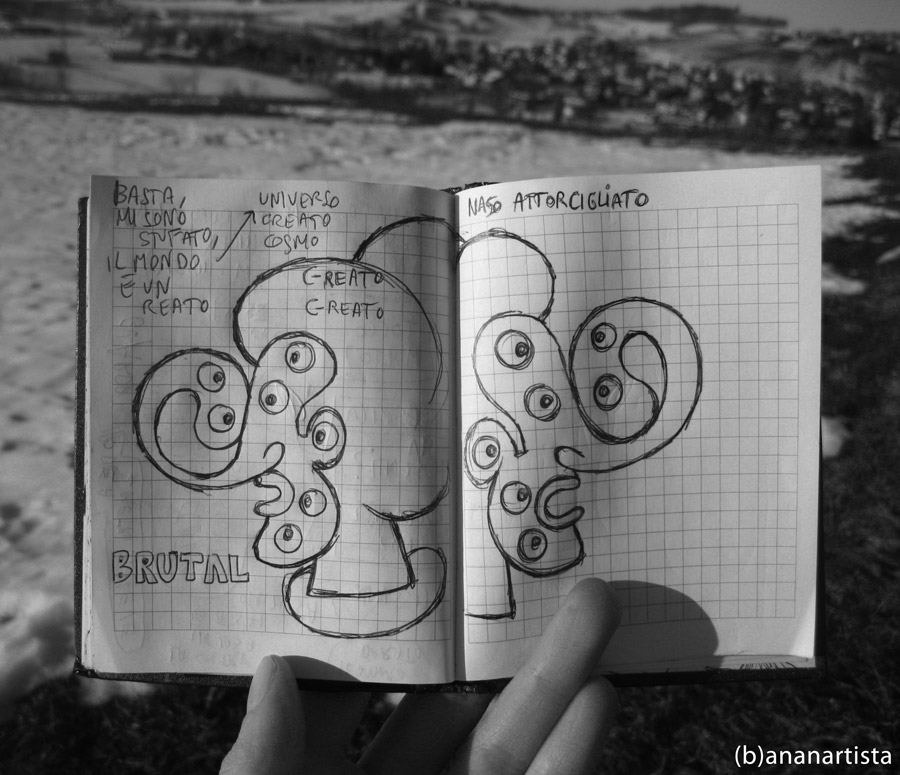 BASTA,
MI SONO
STUFATO,
IL MONDO
È UN
REATO
UNIVERSO
CREATO
COSMO
C-REATO
C-REATO
BRUTAL
NASO ATTORCIGLIATO
(b)ananartista